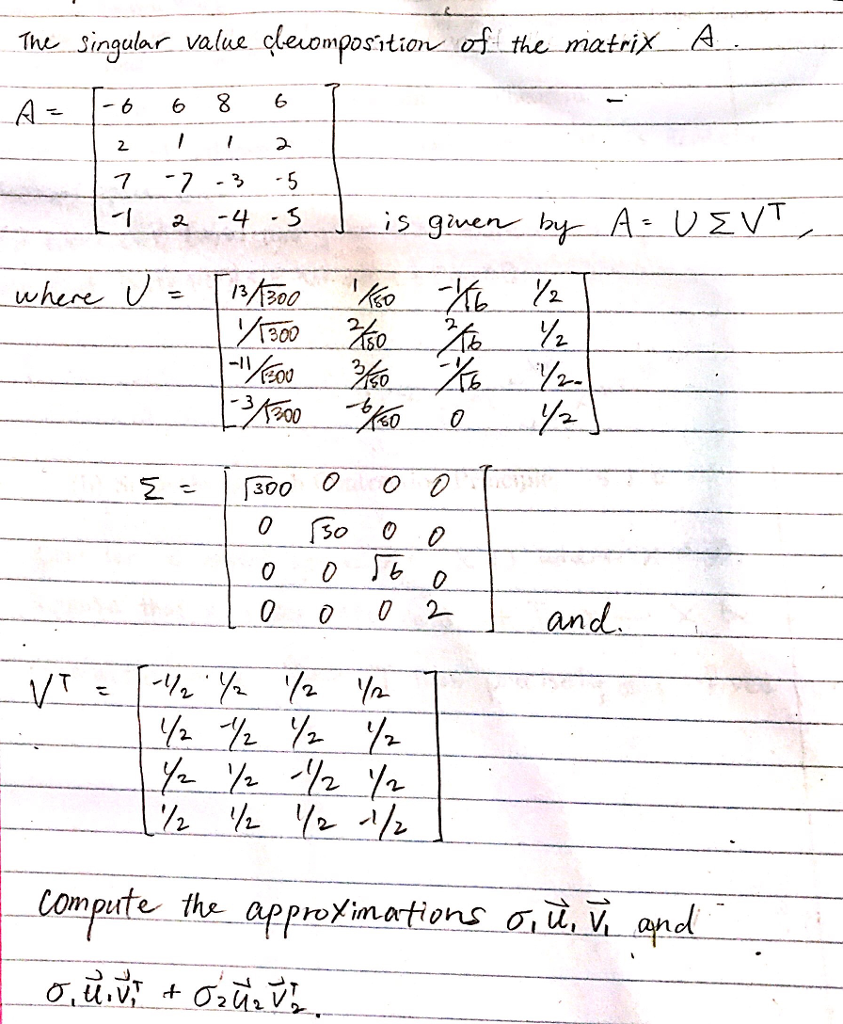 The singular value decomposition of the matrix A.
A = [-6 6 8 6
2 1 1 2
7 -7 -3 -5
-1 2 -4 -5] is given by A = U Σ V^T,
where U = [13/√300 1/√50 -1/√6 1/2
1/√300 2/√50 2/√6 1/2
-11/√300 3/√50 -1/√6 1/2
-3/√300 -6/√50 0 1/2]
Σ = [√300 0 0 0
0 √50 0 0
0 0 √6 0
0 0 0 2] and.
V^T = [-1/2 1/2 1/2 1/2
1/2 -1/2 1/2 1/2
1/2 1/2 -1/2 1/2
1/2 1/2 1/2 -1/2]
compute the approximations σ₁ u⃗₁ v⃗₁ and
σ₁ u⃗₁ v⃗₁^T + σ₂ u⃗₂ v⃗₂^T.